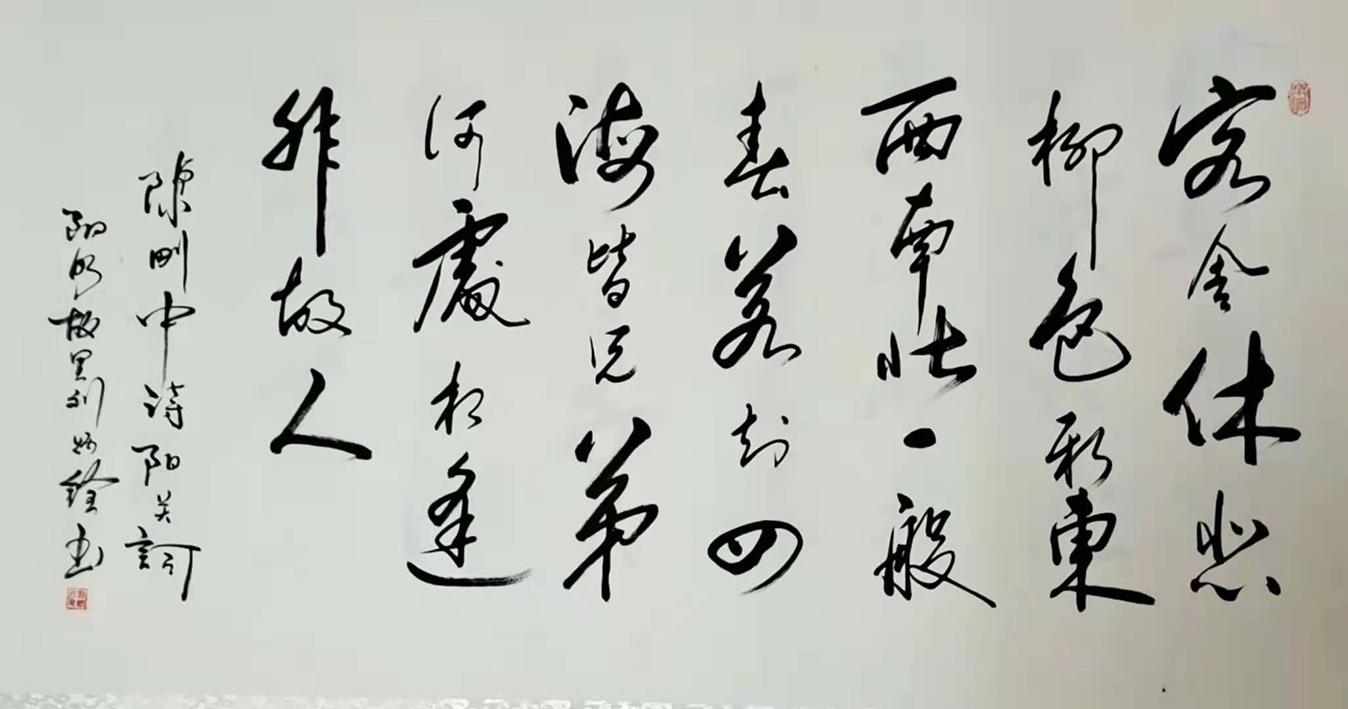 客舍休悲
柳色新東
西南北一般
春若知四
海皆兄弟
何處相逢
非故人
陳剛中诗阳关詞
阳明故里刘銓书